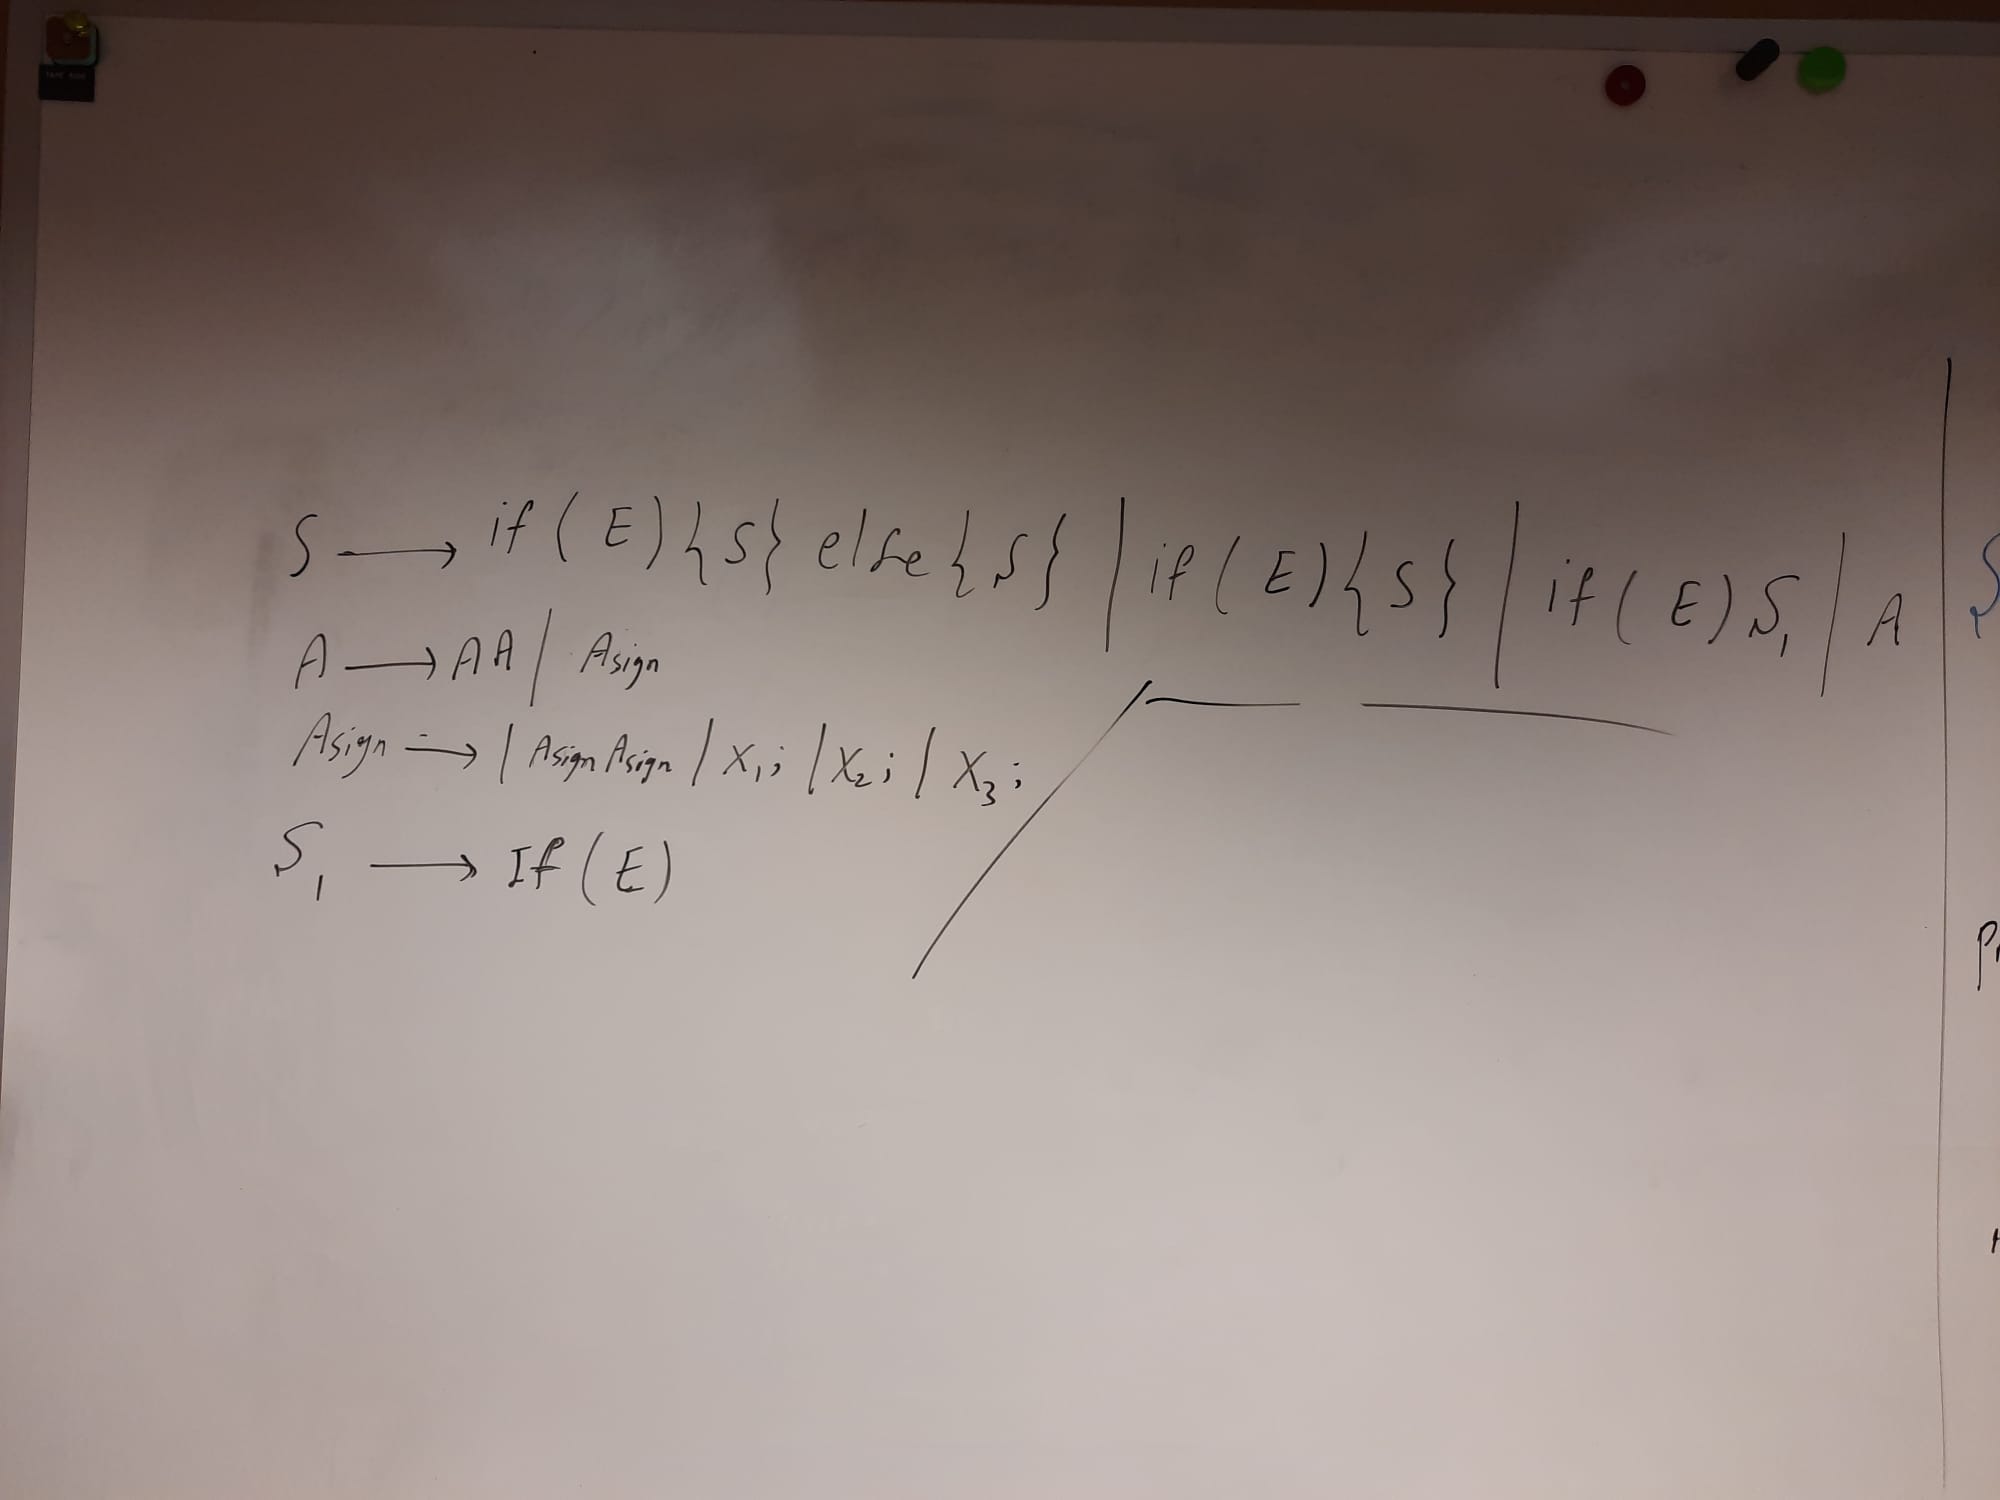 S → if (E) {S} else {S} | if (E) {S} | if (E) S₁ | A
A → AA | Asign
Asign → | Asign Asign | X₁; | X₂; | X₃;
S₁ → If (E)